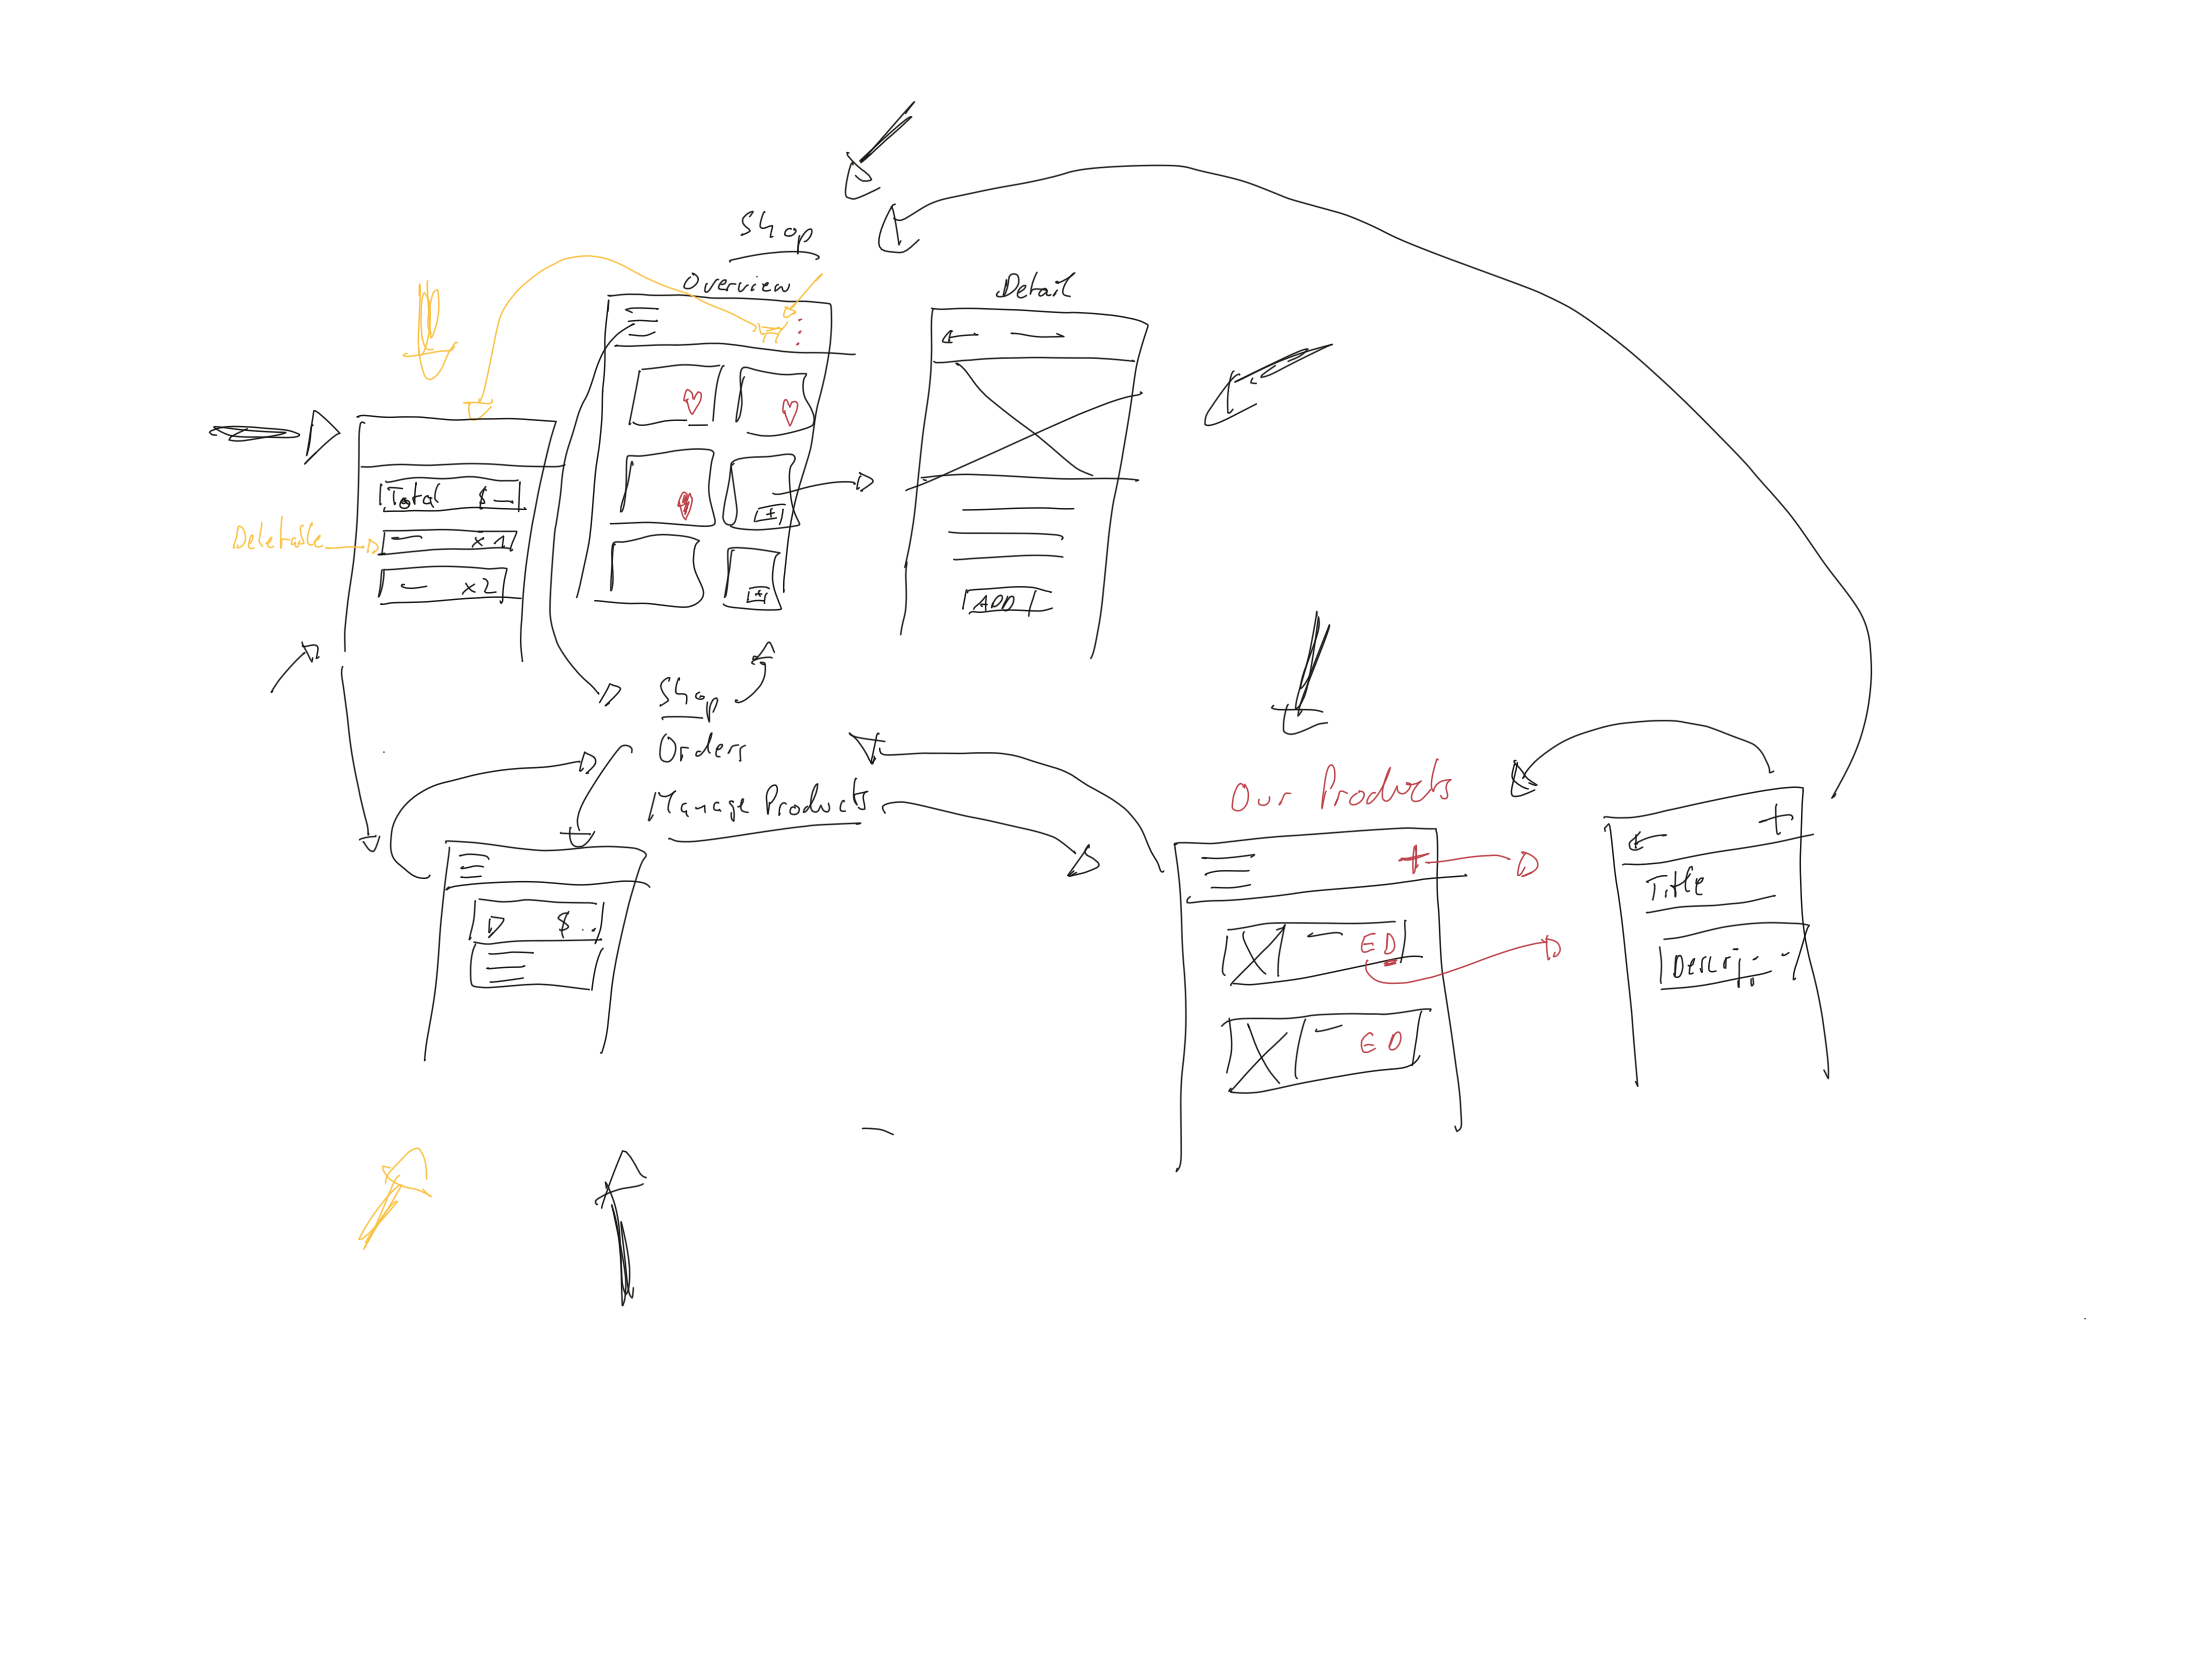 Shop
Overview
Detail
Total $
Deletable
x 1
x 2
ADD
Shop
Orders
Manage Products
Our Products
$ ..
E D
E D
Title
Descrip..